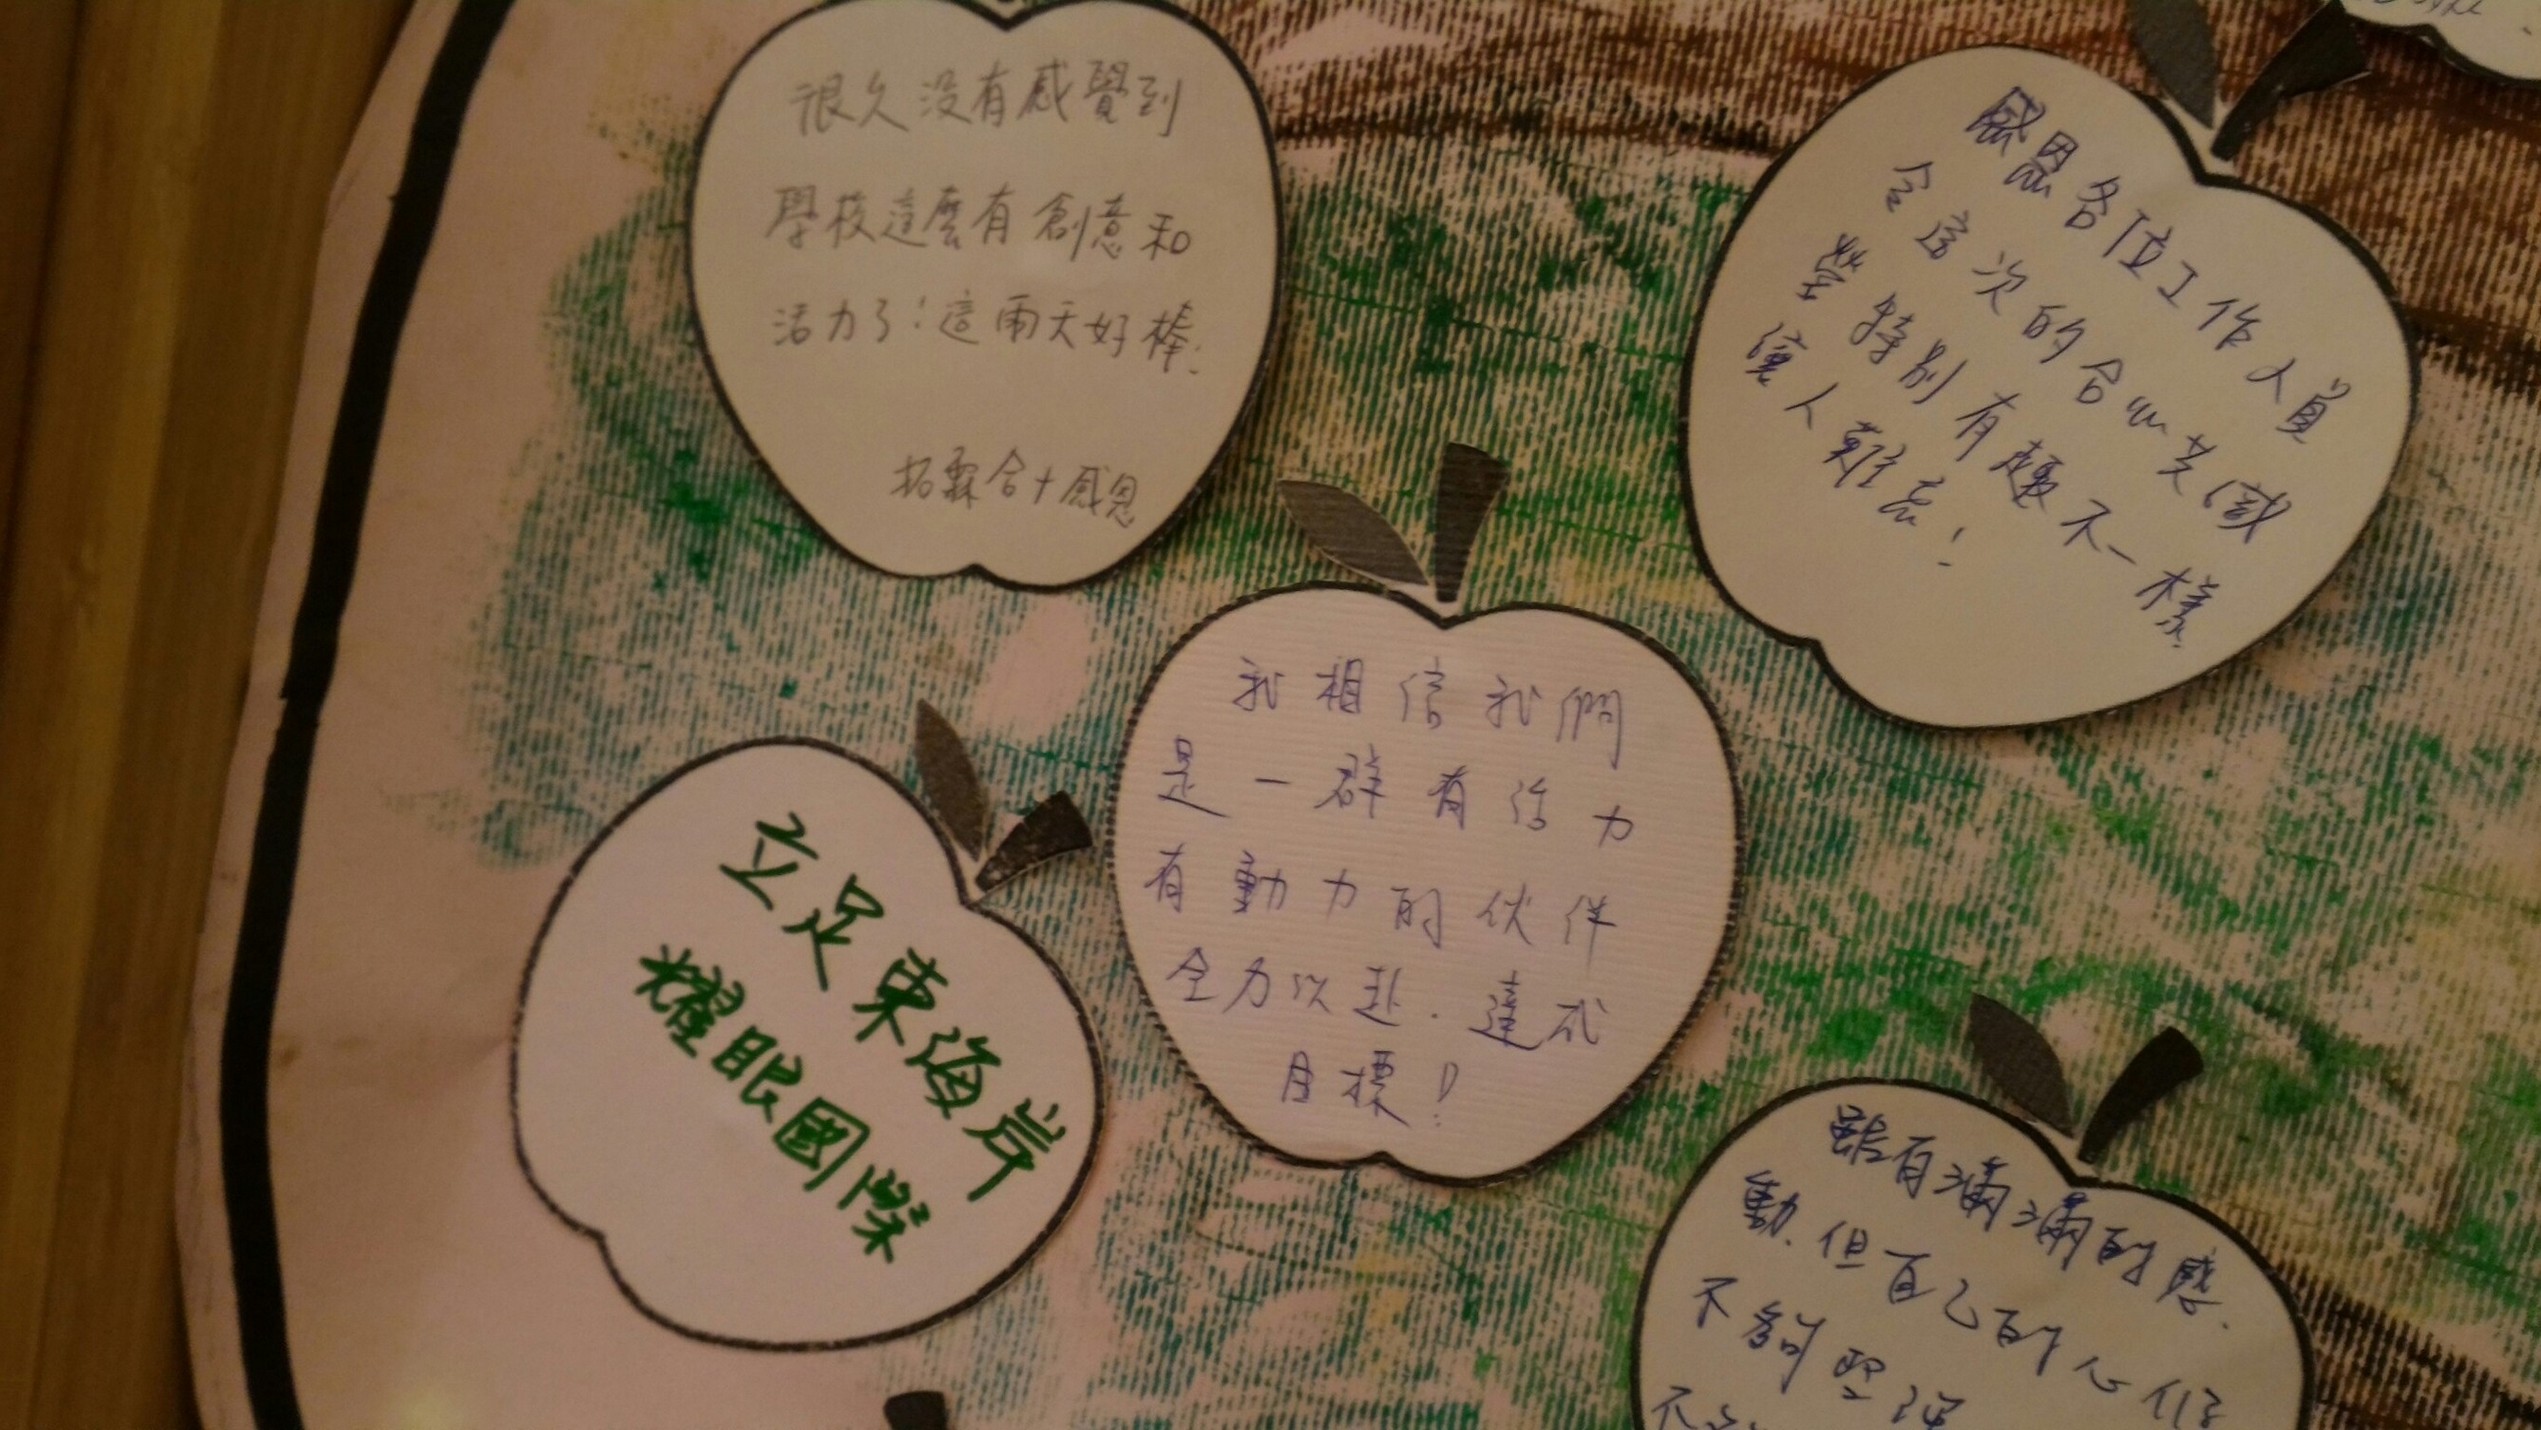 很久沒有感覺到
學校這麼有創意和
活力了！這兩天好棒！
合十感恩
感恩各位工作人員
令這次的合心共識
營特別有趣不一樣
讓人難忘！
我相信我們
是一群有活力
有動力的伙伴
全力以赴．達成
目標！
立足東海岸
耀眼國際
雖有滿滿的感
動．但自己的心
不夠堅強